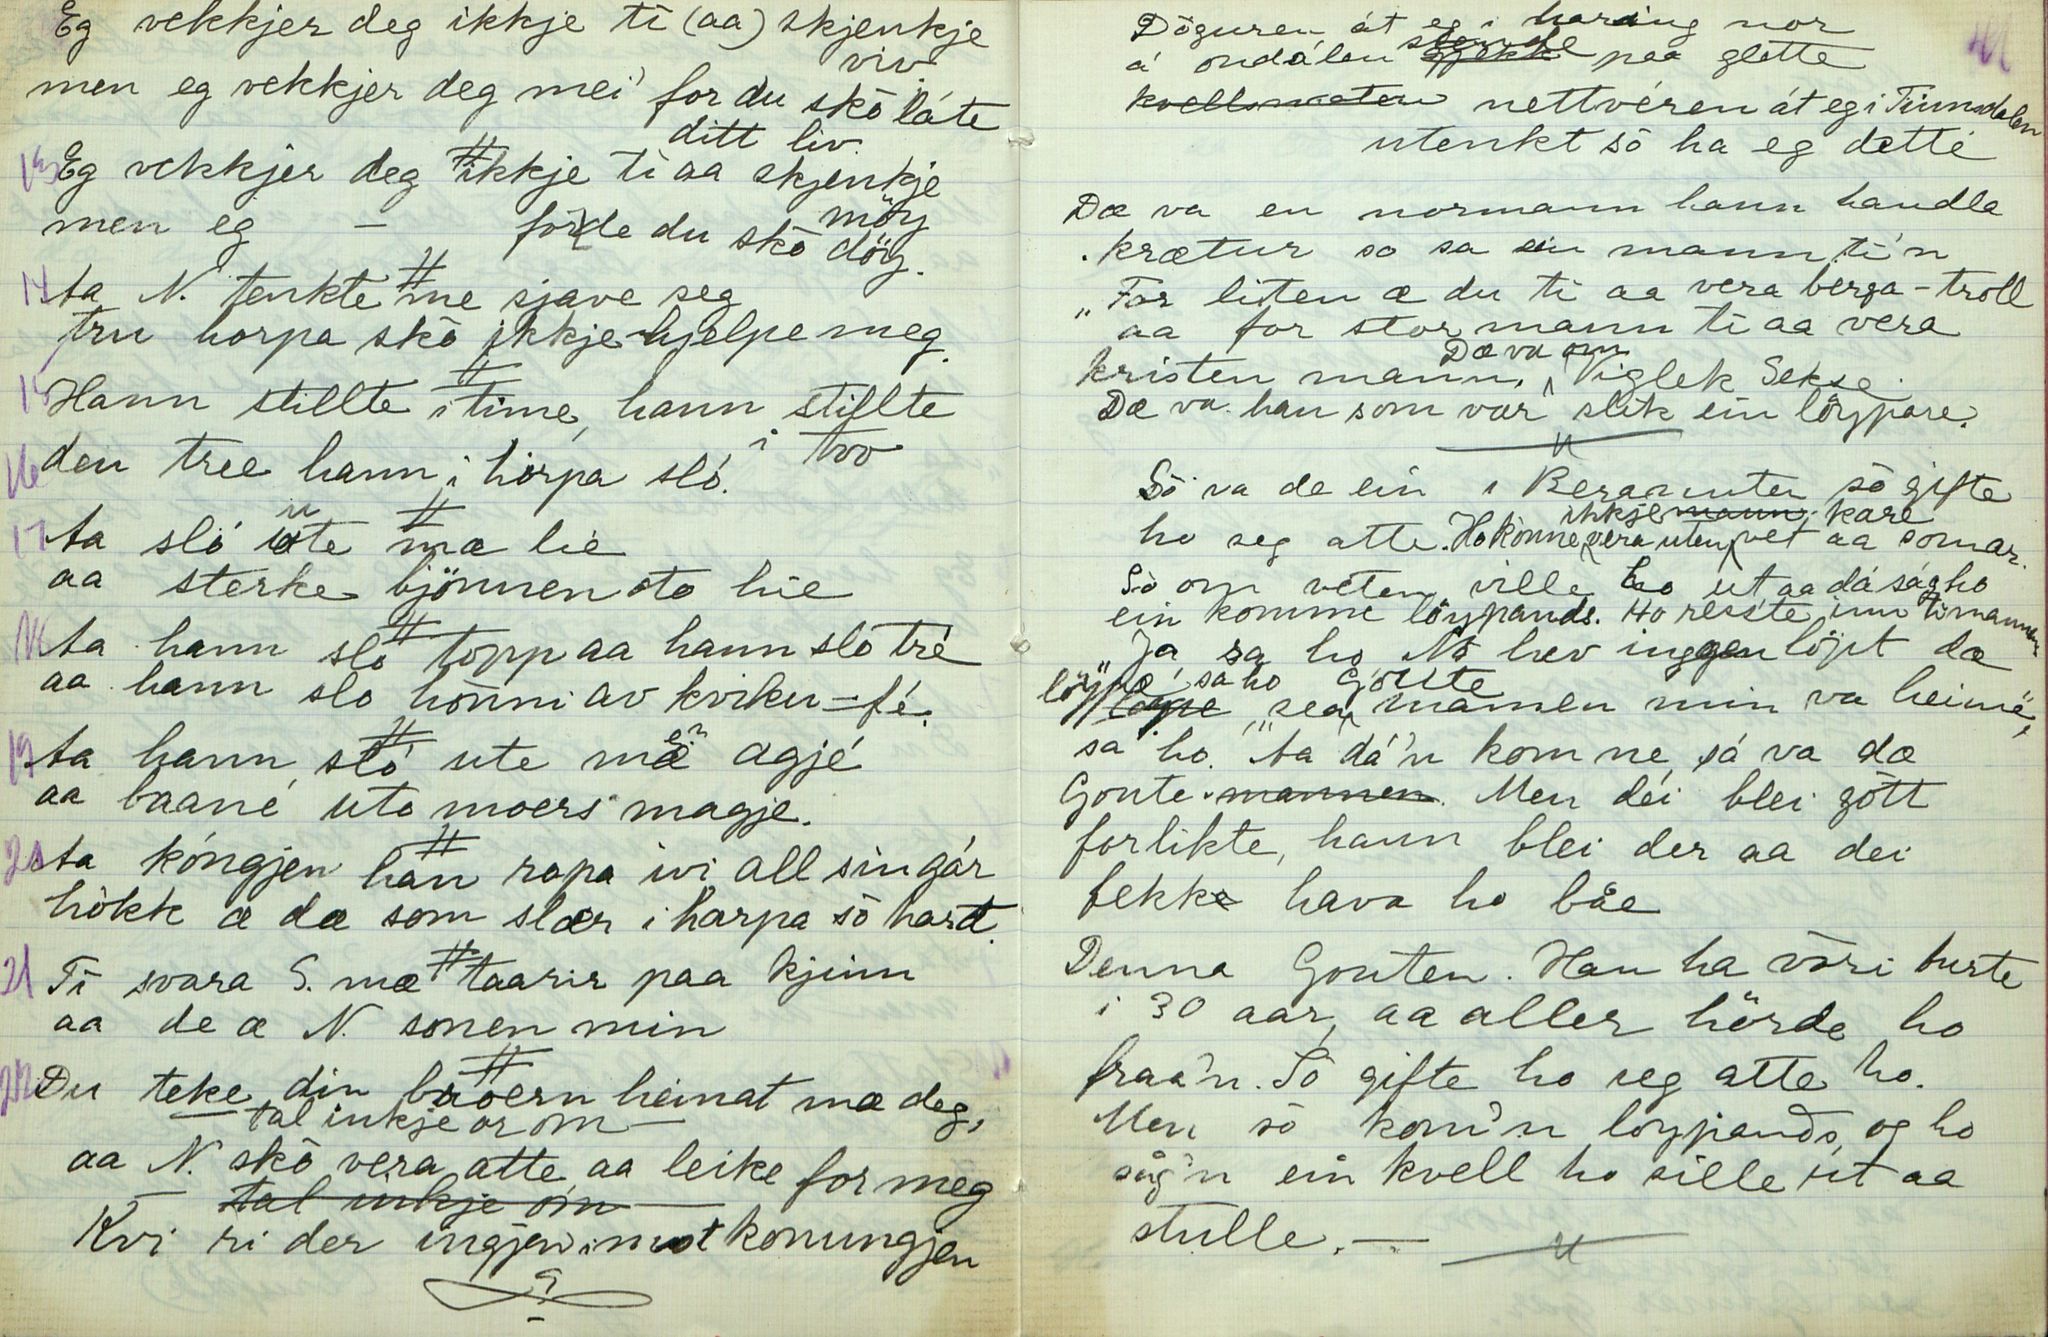 Eg vekkjer deg ikkje ti (aa) skjenkje
viv
men eg vekkjer deg mei' for du skò láte
ditt liv.
13 Eg vekkjer deg # ikkje ti aa skjenkje
möy
men eg — forde du skò döy.
14 ta N. tenkte # me sjave seg
tru horpa skò ikkje hjelpe meg.
15 Hann stillte # i time, hann stillte
i tvo
16 den tree hann i hórpa sló.
17 ta sló ute # mæ lie
aa sterke bjönnen oto hie
18 ta hann slo # topp aa hann slo tré
aa hann slo honni av kviku-fé.
19 ta hann sló # ute mæ agjé
aa baané uto moers magje.
20 ta kóngjen # han ropa ivi all sin gár
hòkk æ dæ som slær i harpa sò hard.
21 Ti svara S. mæ # taarir paa kjinn
aa de æ N. sonen min
22 Du teke din # broern heimat mæ deg,
— tal inkje orom —
aa N. skò vera atte aa leike for meg
— tal inkje om —
Kvi ri der ingjen imot konungjen
Döguren át eg i haring nor
á ondálen gjekk paa glette
kvellsmaten nettvéren át eg i Tinnsdalen
utenkt sò ha eg detté
Dæ va en normann hann handla
krætur so sa ein mann ti'n
"For liten æ du ti aa vera berga-troll
aa for stor mann ti aa vera
Dæ va om
kristen mann. Viglek Sekse.
Dæ va han som var slik ein löypare.
Sò va de ein i sò gifte
ikkje mann kare
ho seg atte. Ho konne vera uten vet aa somar.
Sò om veten ville ho ut aa dá ság ho
ein komme löypands. Ho reiste inn ti mannen
"Ja sa ho No hev inggen löpt dæ
löypæ sa ho Goute
löype "sea mannen min va heime",
sa ho. ta dá'n kom ne, sá va dæ
Goute mannen. Men déi blei gòtt
forlikte, hann blei der aa dei
fekke hava ho båe
Denna Gouten. Han ha vòri burte
i 30 aar, aa aller hörde ho
fraa'n. Sò gifte ho seg atte ho.
Men sò kom'n loypands, og ho
såg'n ein kvell ho sille ut aa
stulle. —